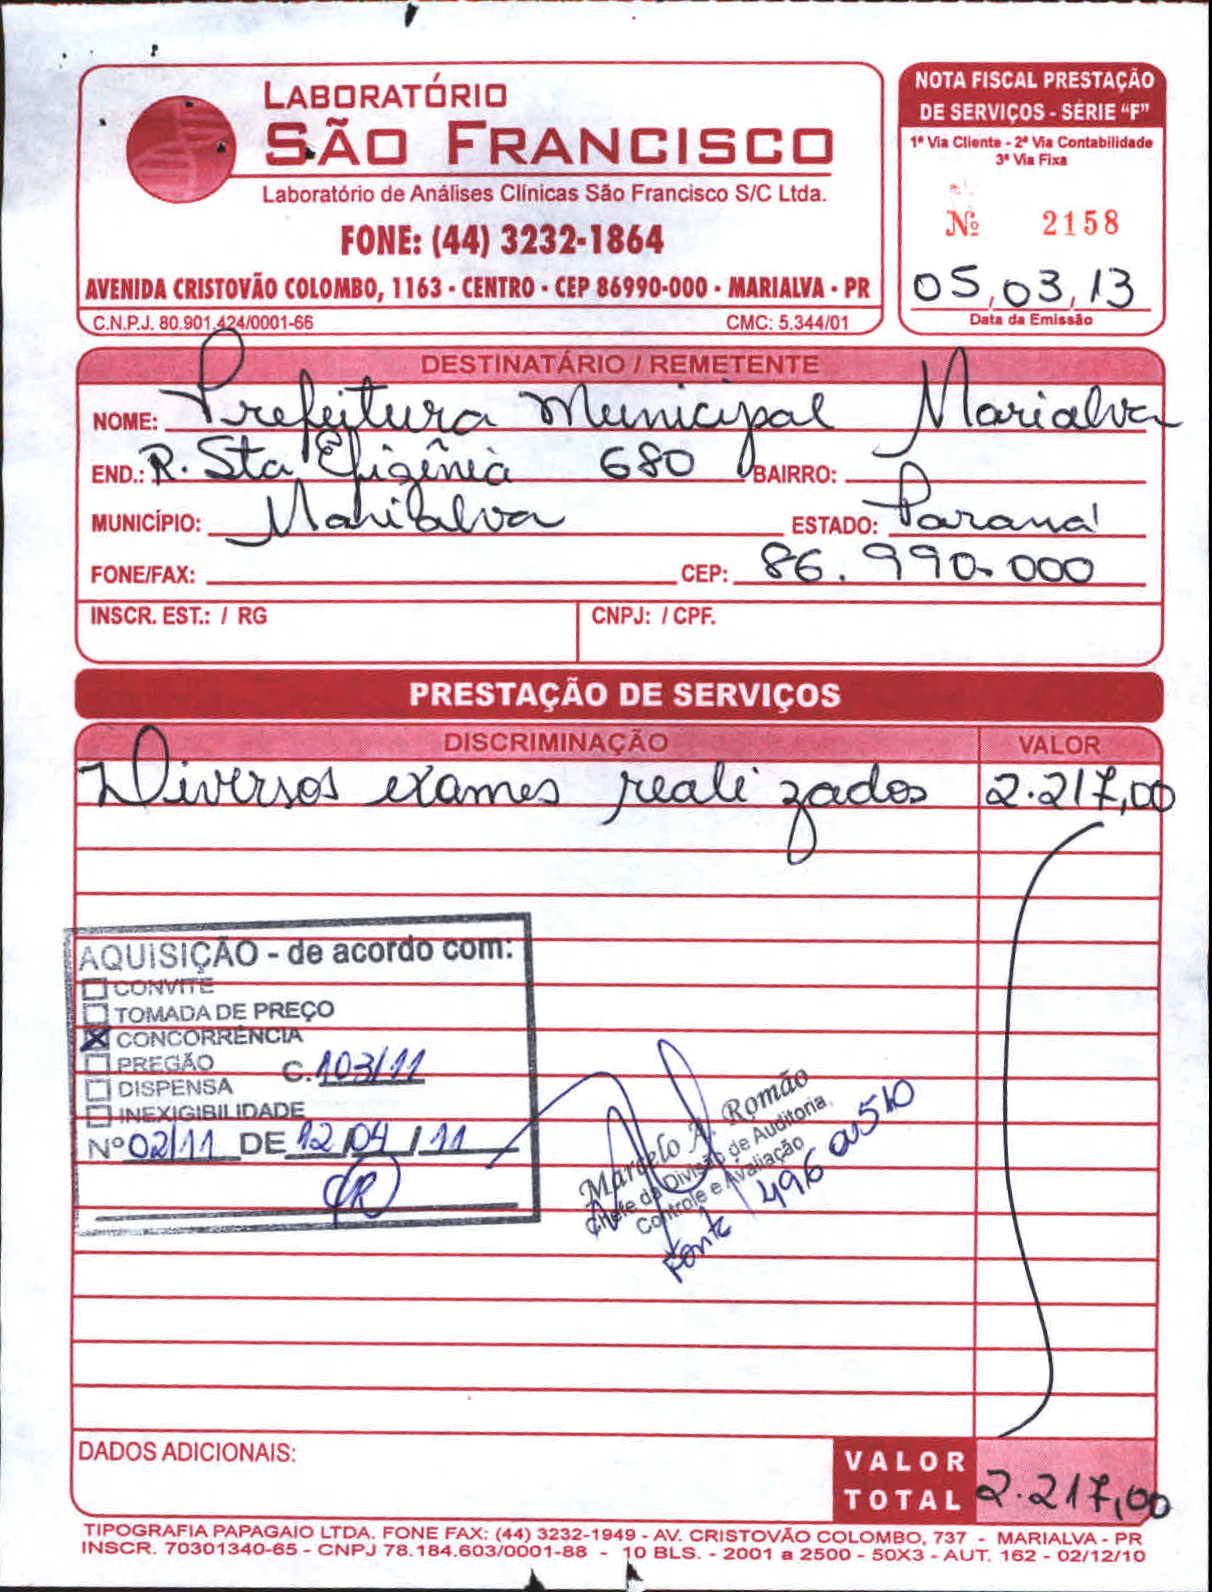 LABORATÓRIO
SÃO FRANCISCO
Laboratório de Análises Clínicas São Francisco S/C Ltda.
FONE: (44) 3232-1864
AVENIDA CRISTOVÃO COLOMBO, 1163 - CENTRO - CEP 86990-000 - MARIALVA - PR
C.N.P.J. 80.901.424/0001-66 CMC: 5.344/01
NOTA FISCAL PRESTAÇÃO
DE SERVIÇOS - SÉRIE "F"
1ª Via Cliente - 2ª Via Contabilidade
3ª Via Fixa
Nº 2158
05,03,13
Data da Emissão
DESTINATÁRIO / REMETENTE
NOME: Prefeitura Municipal Marialva
END.: R. Sta Efigênia 680 BAIRRO:
MUNICÍPIO: Marialva ESTADO: Paraná
FONE/FAX: CEP: 86.990-000
INSCR. EST.: / RG CNPJ: / CPF.
PRESTAÇÃO DE SERVIÇOS
DISCRIMINAÇÃO VALOR
Diversos exames realizados 2.217,00
AQUISIÇÃO - de acordo com:
CONVITE
TOMADA DE PREÇO
CONCORRÊNCIA
PREGÃO C.103/11
DISPENSA
INEXIGIBILIDADE
Nº 02/11 DE 12/04/11
Marcelo A. Romão
Chefe da Divisão de Auditoria,
Controle e Avaliação
Fonte 496 a 510
DADOS ADICIONAIS:
VALOR
TOTAL 2.217,00
TIPOGRAFIA PAPAGAIO LTDA. FONE FAX: (44) 3232-1949 - AV. CRISTOVÃO COLOMBO, 737 - MARIALVA - PR
INSCR. 70301340-65 - CNPJ 78.184.603/0001-88 - 10 BLS. - 2001 a 2500 - 50X3 - AUT. 162 - 02/12/10